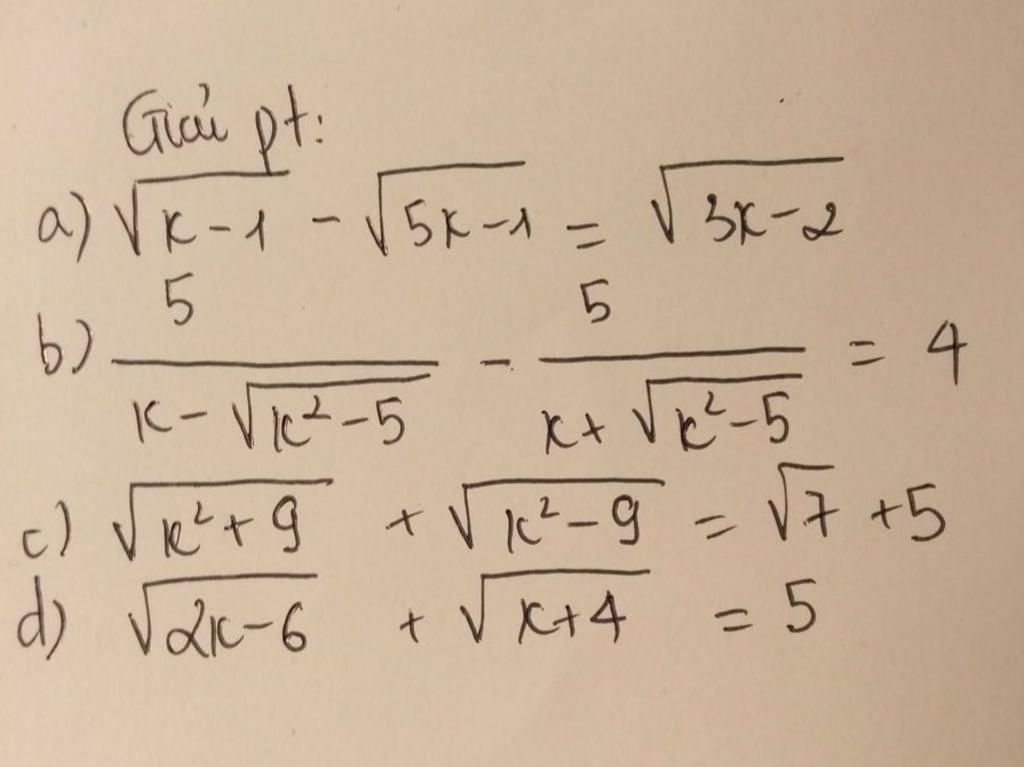 Giải pt:
a) √(x-1) - √(5x-1) = √(3x-2)
b) 5/(x-√(x²-5)) - 5/(x+√(x²-5)) = 4
c) √(x²+9) + √(x²-9) = √7 +5
d) √(2x-6) + √(x+4) = 5